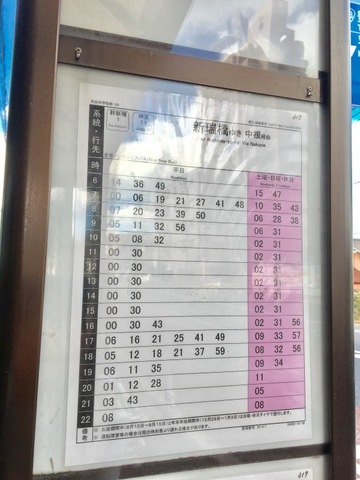 J19
新瑞橋ゆき 中根経由
to Aratama-bashi Via Nakane
系統・行先
時 平日 土曜・日曜・休日
6 14 36 49 15 47
7 00 06 19 21 27 41 48 10 35 43
8 07 20 23 39 50 06 28 38
9 05 11 32 56 06 31
10 05 08 32 06 31
11 00 30 02 31
12 00 30 02 31
13 00 30 02 31
14 00 30 02 31
15 00 30 02 31
16 00 30 43 02 31 56
17 06 16 21 25 41 49 09 33 57
18 05 12 18 21 37 59 08 32 56
19 06 11 35 09 34
20 01 12 28 11
21 03 43 05
22 08 08
備考
J19